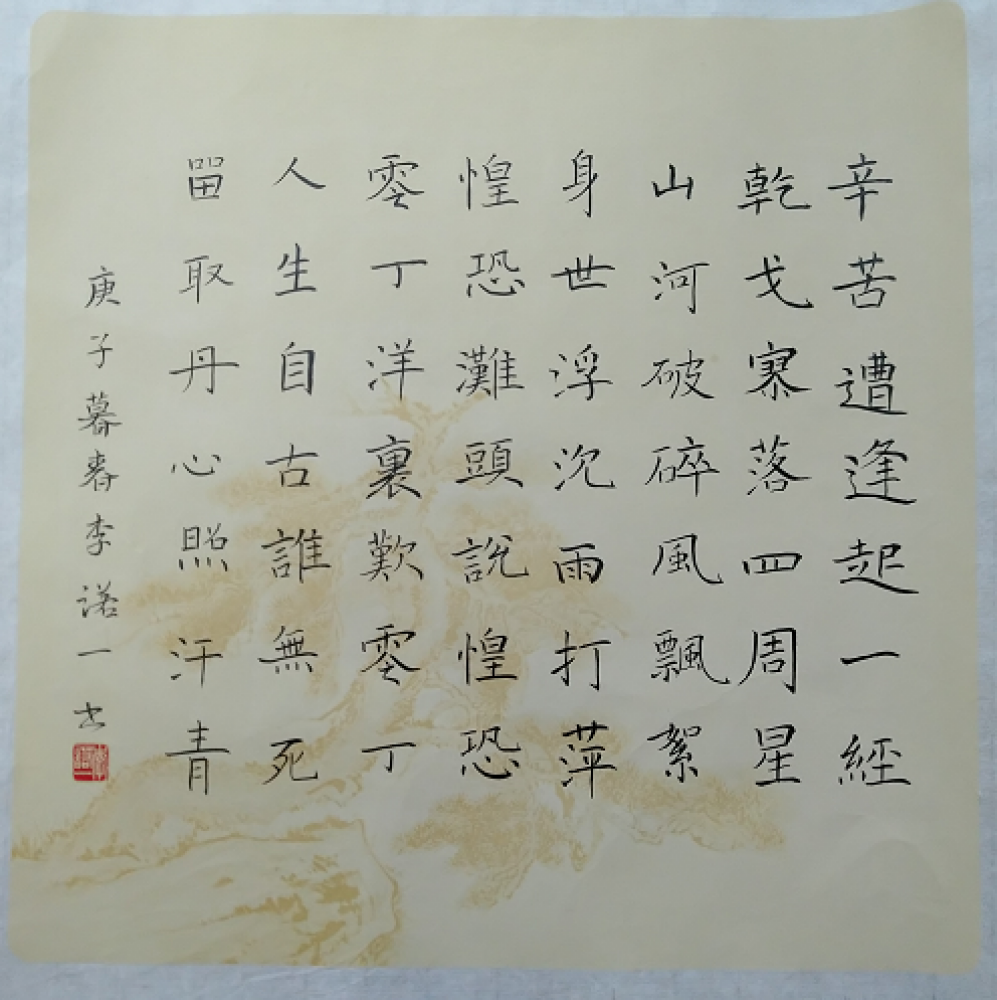 辛苦遭逢起一經
乾戈寥落四周星
山河破碎風飄絮
身世浮沉雨打萍
惶恐灘頭說惶恐
零丁洋裏歎零丁
人生自古誰無死
留取丹心照汗青
庚子暮春李諾一书